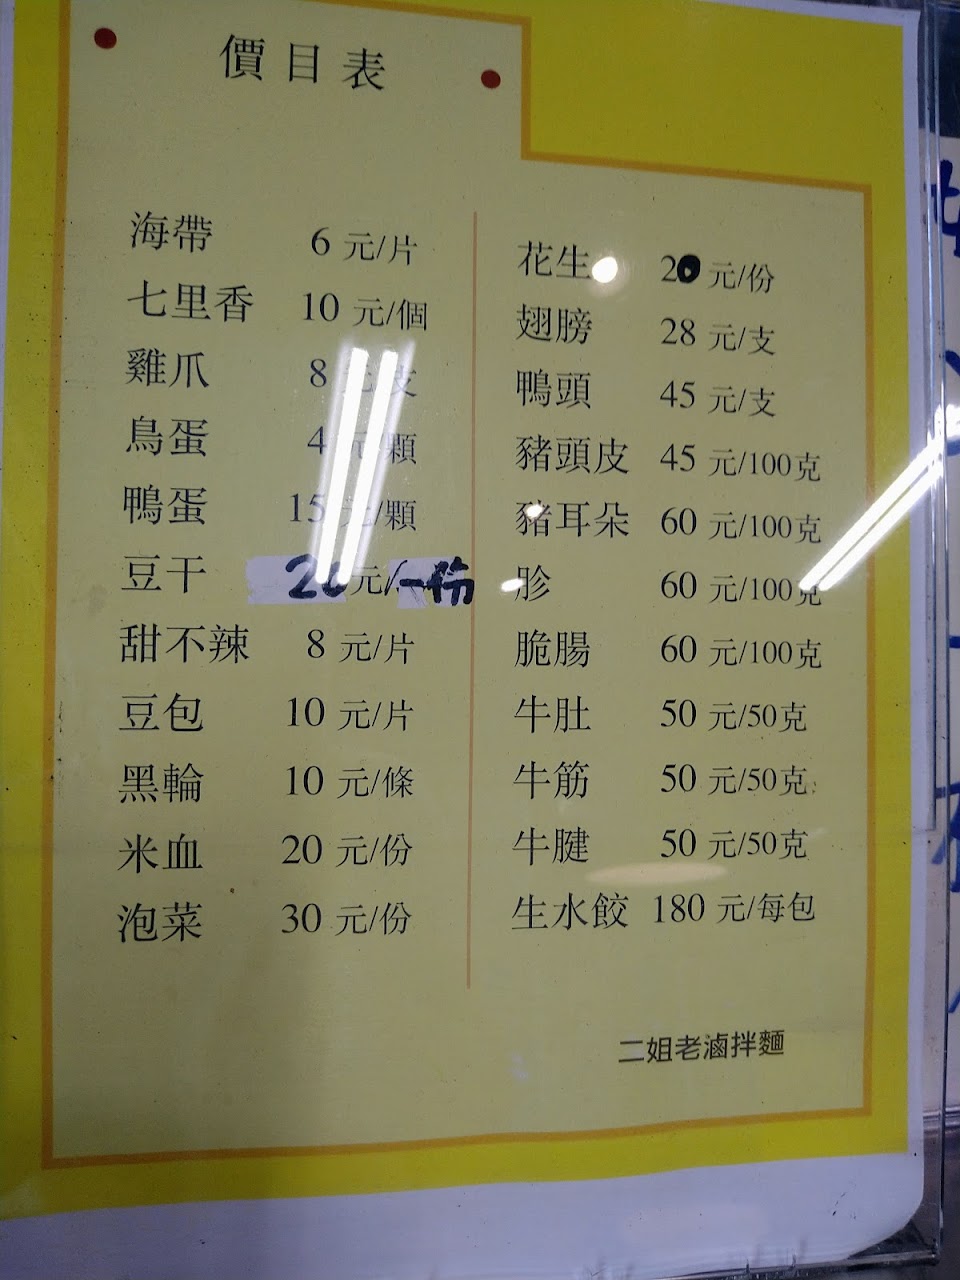 價目表
海帶 6 元/片
七里香 10 元/個
雞爪 8 元/支
鳥蛋 4 元/顆
鴨蛋 15 元/顆
豆干 20 元/一份
甜不辣 8 元/片
豆包 10 元/片
黑輪 10 元/條
米血 20 元/份
泡菜 30 元/份
花生 20 元/份
翅膀 28 元/支
鴨頭 45 元/支
豬頭皮 45 元/100克
豬耳朵 60 元/100克
胗 60 元/100克
脆腸 60 元/100克
牛肚 50 元/50克
牛筋 50 元/50克
牛腱 50 元/50克
生水餃 180 元/每包
二姐老滷拌麵